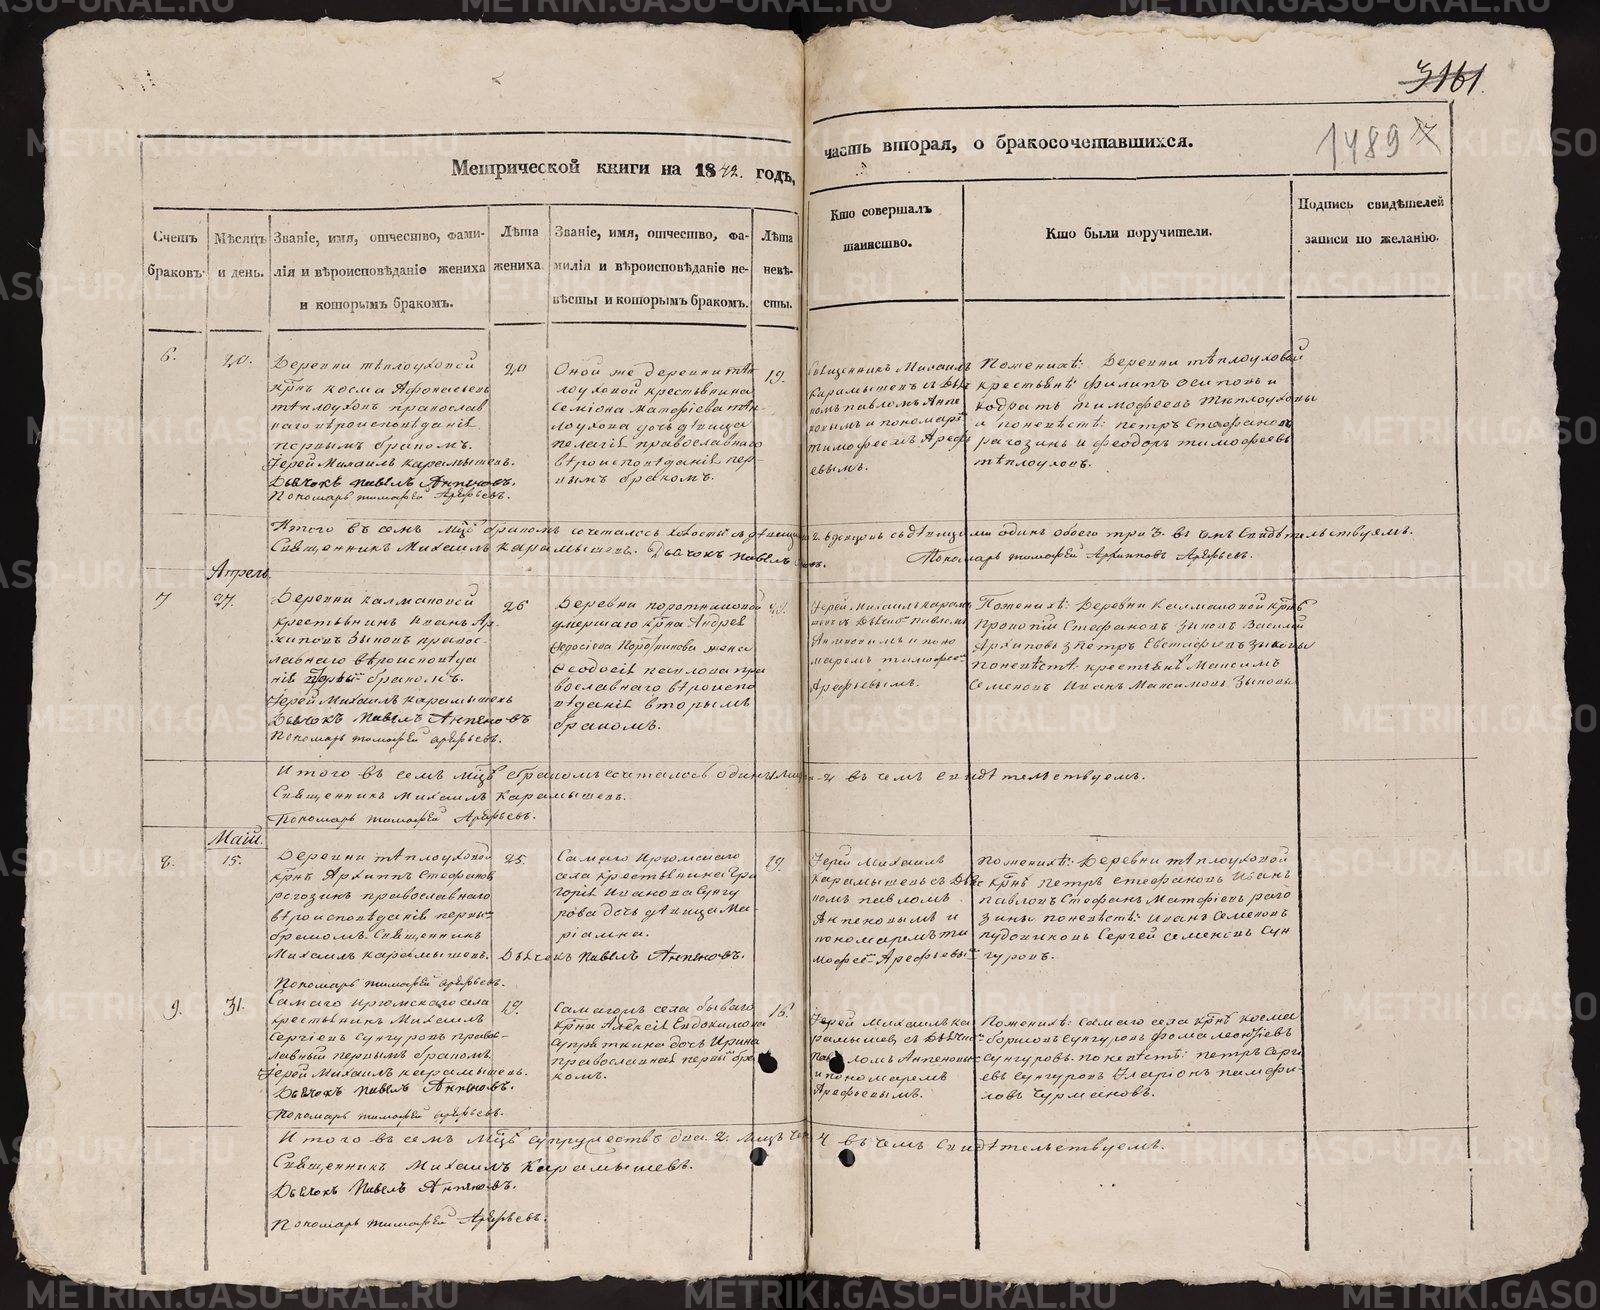 3161
1489
Метрической книги на 1842. годъ,
часть вторая, о бракосочетавшихся.
Счетъ браковъ.
Мѣсяцъ и день.
Званіе, имя, отчество, фами-
лія и вѣроисповѣданіе жениха
и которымъ бракомъ.
Лѣта
жениха.
Званіе, имя, отчество, фа-
милія и вѣроисповѣданіе не-
вѣсты и которымъ бракомъ.
Лѣта
невѣ-
сты.
Кто совершалъ
таинство.
Кто были поручители.
Подпись свидѣтелей
записи по желанію.
6.
20.
Деревни тѣплоуховой
крнъ косма Афонасьевъ
тѣплоуховъ православ
наго вѣроисповѣданія
первымъ бракомъ.
Іерей Михаилъ карамышевъ.
Дьячокъ павелъ
Пономарь тимофей Арефьевъ.
20
Оной же деревни тѣп
лоуховой крестьянина
Семіона матфіева тѣп-
лоухова дочь дѣвица
пелагія православнаго
вѣроисповѣданія пер-
вымъ бракомъ.
19.
Священникъ Михаилъ
карамышевъ съ Дьяч
комъ павломъ
и пономаремъ
тимофеемъ Ареф
евымъ.
Поженихѣ: Деревни тѣплоуховой
крестьянѣ филипъ осиповъ и
кодратъ тимофеевъ тѣплоуховы
и поневѣстѣ: петръ Стефановъ
рагозинъ и феодоръ тимофеевъ
тѣплоуховъ.
Итого въ семъ мцѣ бракомъ сочеталось
обоего три 3. въ чемъ свидѣтельствуемъ.
Священникъ Михаилъ карамышевъ. Дьячокъ павелъ
Пономарь тимофей Арефьевъ.
Апрель.
7
27.
Деревни калмаковой
крестьянинъ иванъ Ар-
хиповъ Зыковъ правос-
лавнаго вѣроисповѣда
нія первы бракомъ.
Іерей Михаилъ карамышевъ
Дьячокъ павелъ
Пономарь тимофей арефьевъ.
26
Деревни
умершаго крна Андрея
жена
Феодосія павлова пра
вославнаго вѣроиспо
вѣданія вторымъ
бракомъ.
Іерей Михаилъ карам
павлом
и поно
маремъ тимофее
Арефьевымъ.
Поженихѣ: Деревни Калмаковой крнѣ
Прокопій Стефановъ Зыковъ Василій
Архиповъ и петръ Евстафіевъ зыковы
поневѣстѣ: крестьянѣ Максимъ
Семеновъ иванъ Максимовъ Зыковы
Итого въ семъ мцѣ бракомъ сочеталось одинъ
въ чемъ свидѣтельствуемъ.
Священникъ Михаилъ Карамышевъ.
Пономарь тимофей Арефьевъ.
Маій.
8.
15.
Деревни тѣплоуховой
крнъ Архиппъ Стефановъ
рогозинъ православнаго
вѣроисповѣданія первы
бракомъ. Священникъ
Михаилъ карамышевъ. Дьячокъ павелъ
Пономарь тимофей арефьевъ.
25.
Самаго Иргомскаго
села крестьянина Гри
горія Иванова Сунгу
рова дочь дѣвица Ма-
ріамна.
19.
Іерей Михаилъ
Карамышевъ съ Дьяч
комъ павломъ
и
пономаремъ ти
мофее Арефьевы
поженихѣ: Деревни тѣплоуховой
крнѣ петръ стефановъ Иванъ
павловъ Стефанъ Матфіевъ раго
зины поневѣстѣ: иванъ Семеновъ
Сергей семеновъ Сун
гуровъ.
9.
31.
Самаго Иргомскаго села
крестьянинъ Михаилъ
Сергіевъ Сунгуровъ право-
славный первымъ бракомъ
Іерей Михаилъ карамышевъ.
Дьячокъ павелъ
Пономарь тимофей арефьевъ.
19.
Самагожъ села бываго
крна Алексія Евдокимова
дочь Ирина
православная первы бра
комъ.
16.
Іерей Михаилъ ка
рамышев съ Дьячк
павломъ
и пономаремъ
Арефьевымъ.
Поженихѣ: самаго села крнѣ косма
Сунгуровъ фома леонтіевъ
Сунгуровъ. поневѣстѣ: петръ Серги
евъ Сунгуровъ Иларіонъ памфи-
ловъ Чурмановъ.
Итого въ семъ мцѣ супружествъ два. 2. лицъ 4 въ чемъ свидѣтельствуемъ.
Священникъ Михаилъ Карамышевъ.
Дьячокъ Павелъ
Пономарь тимофей Арефьевъ.
METRIKI.GASO-URAL.RU